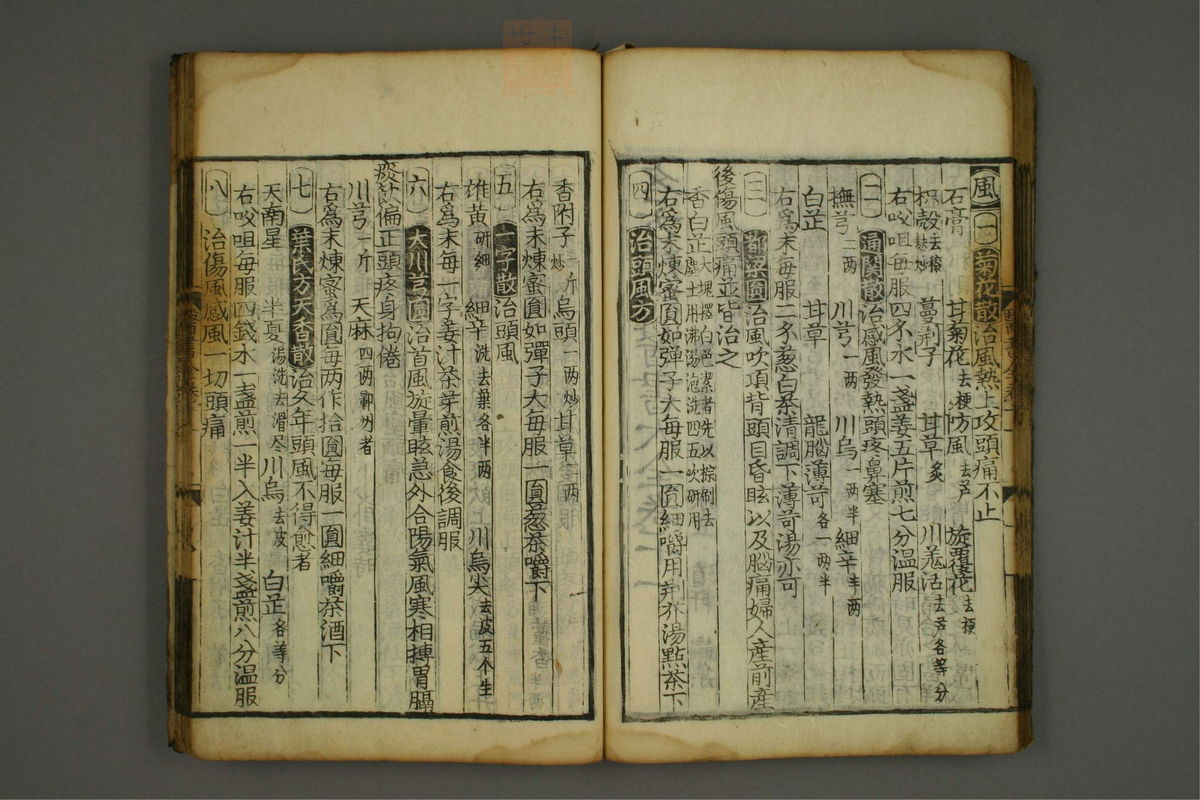 風 (一)菊花散治風熱上攻頭痛不止
石膏 甘菊花去梗防風去芦 旋覆花去梗
枳殼去穰麩炒 蔓荊子 甘草炙 川羌活去芦各等分
右㕮咀每服四錢水一盞姜五片煎七分溫服
(二)通關散治感風發熱頭疼鼻塞
撫芎二两 川芎一两 川烏一两半 細辛半两
白芷 甘草 龍腦薄苛各一两半
右爲末每服二錢葱白茶清調下薄苛湯亦可
(三)都梁圓治風吹項背頭目昏眩以及腦痛婦人產前產
後傷風頭痛並皆治之
香白芷大塊擇白色潔者先以棕刷去塵土用沸湯泡洗四五次研用
右爲末煉蜜圓如弹子大每服一圓細嚼用荆芥湯點茶下
(四)治頭風方
香附子炒一斤烏頭一两炒甘草二两
右爲末煉蜜圓如彈子大每服一圓葱茶嚼下
(五)一字散治頭風
雄黄研細 細辛洗去葉各半两 川烏尖去皮五个生
右爲末每一字姜汁茶芽煎湯食後調服
(六)大川芎圓治首風旋暈眩急外合陽氣風寒相搏胃膈
痰飲偏正頭疼身拘倦
川芎一斤 天麻四两鄆州者
右爲末煉蜜爲圓每两作拾圓每服一圓細嚼茶酒下
(七)葉氏方天香散治久年頭風不得愈者
天南星 半夏湯洗去滑尽川烏去皮 白芷各等分
右㕮咀每服四錢水一盞煎一半入姜汁半盞煎八分溫服
(八)治傷風感風一切頭痛